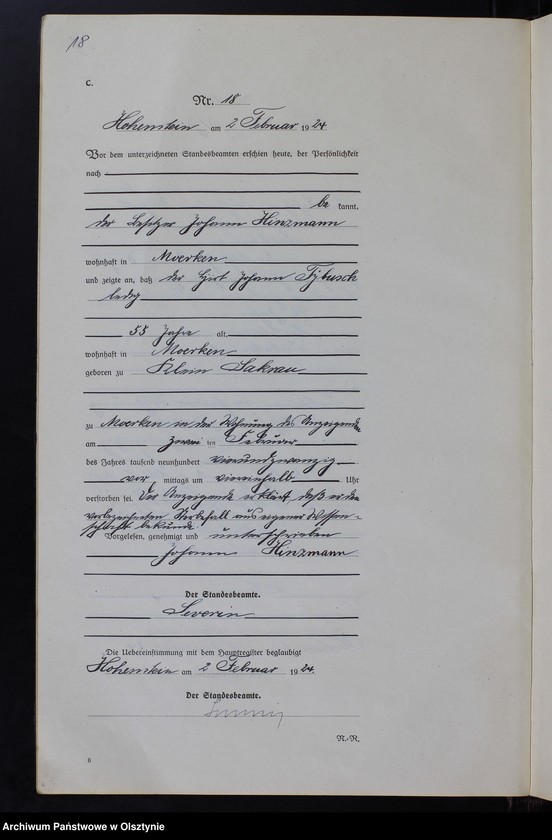 18
C.
Nr. 18
Hohenstein am 2 Februar 1924
Vor dem unterzeichneten Standesbeamten erschien heute, der Persönlichkeit
nach
be kannt,
der Besitzer Johann Hinzmann
wohnhaft in Moerken
und zeigte an, daß der Hirt Johann Tybusch
ledig
55 Jahre alt,
wohnhaft in Moerken
geboren zu Klein Sakrau
zu Moerken in der Wohnung des Anzeigenden
am zwei ten Februar
des Jahres tausend neunhundert vierundzwanzig
vor mittags um viereinhalb Uhr
verstorben sei. Der Anzeigende erklärt daß er den
vorbezeichneten Sterbefall aus eigener Wissen-
schaft bekunde.
Vorgelesen, genehmigt und unterschrieben
Johann Hinzmann
Der Standesbeamte.
Severin
Die Uebereinstimmung mit dem Hauptregister beglaubigt
Hohenstein am 2 Februar 1924.
Der Standesbeamte.
N.-R.
6
Archiwum Państwowe w Olsztynie